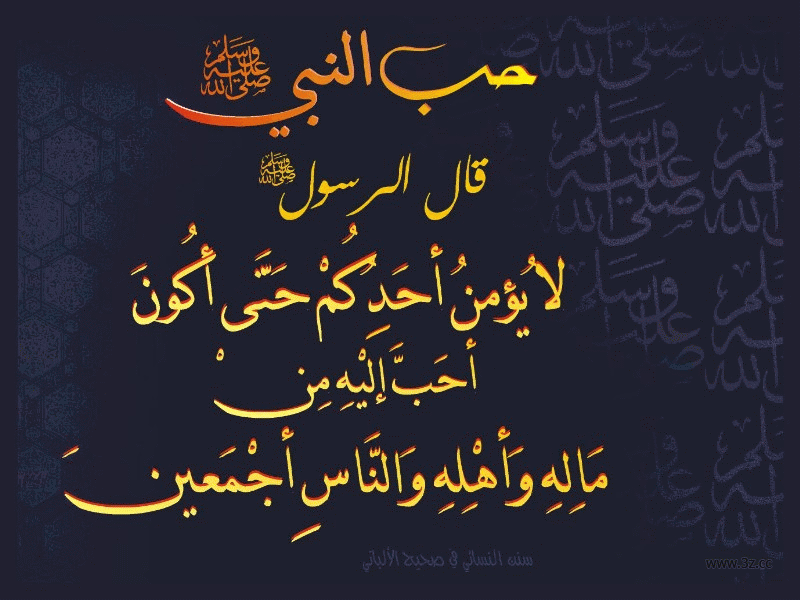 حب النبي ﷺ
قال الرسول ﷺ
لاَ يُؤمنُ أحَدِكُمْ حَتَّى أكُونَ
أحَبَّ إليْهِ مِنْ
مَالِهِ وَأهْلِهِ وَالنَّاسِ أجْمَعينَ
سنن النسائي في صحيح الألباني
www.3z.cc